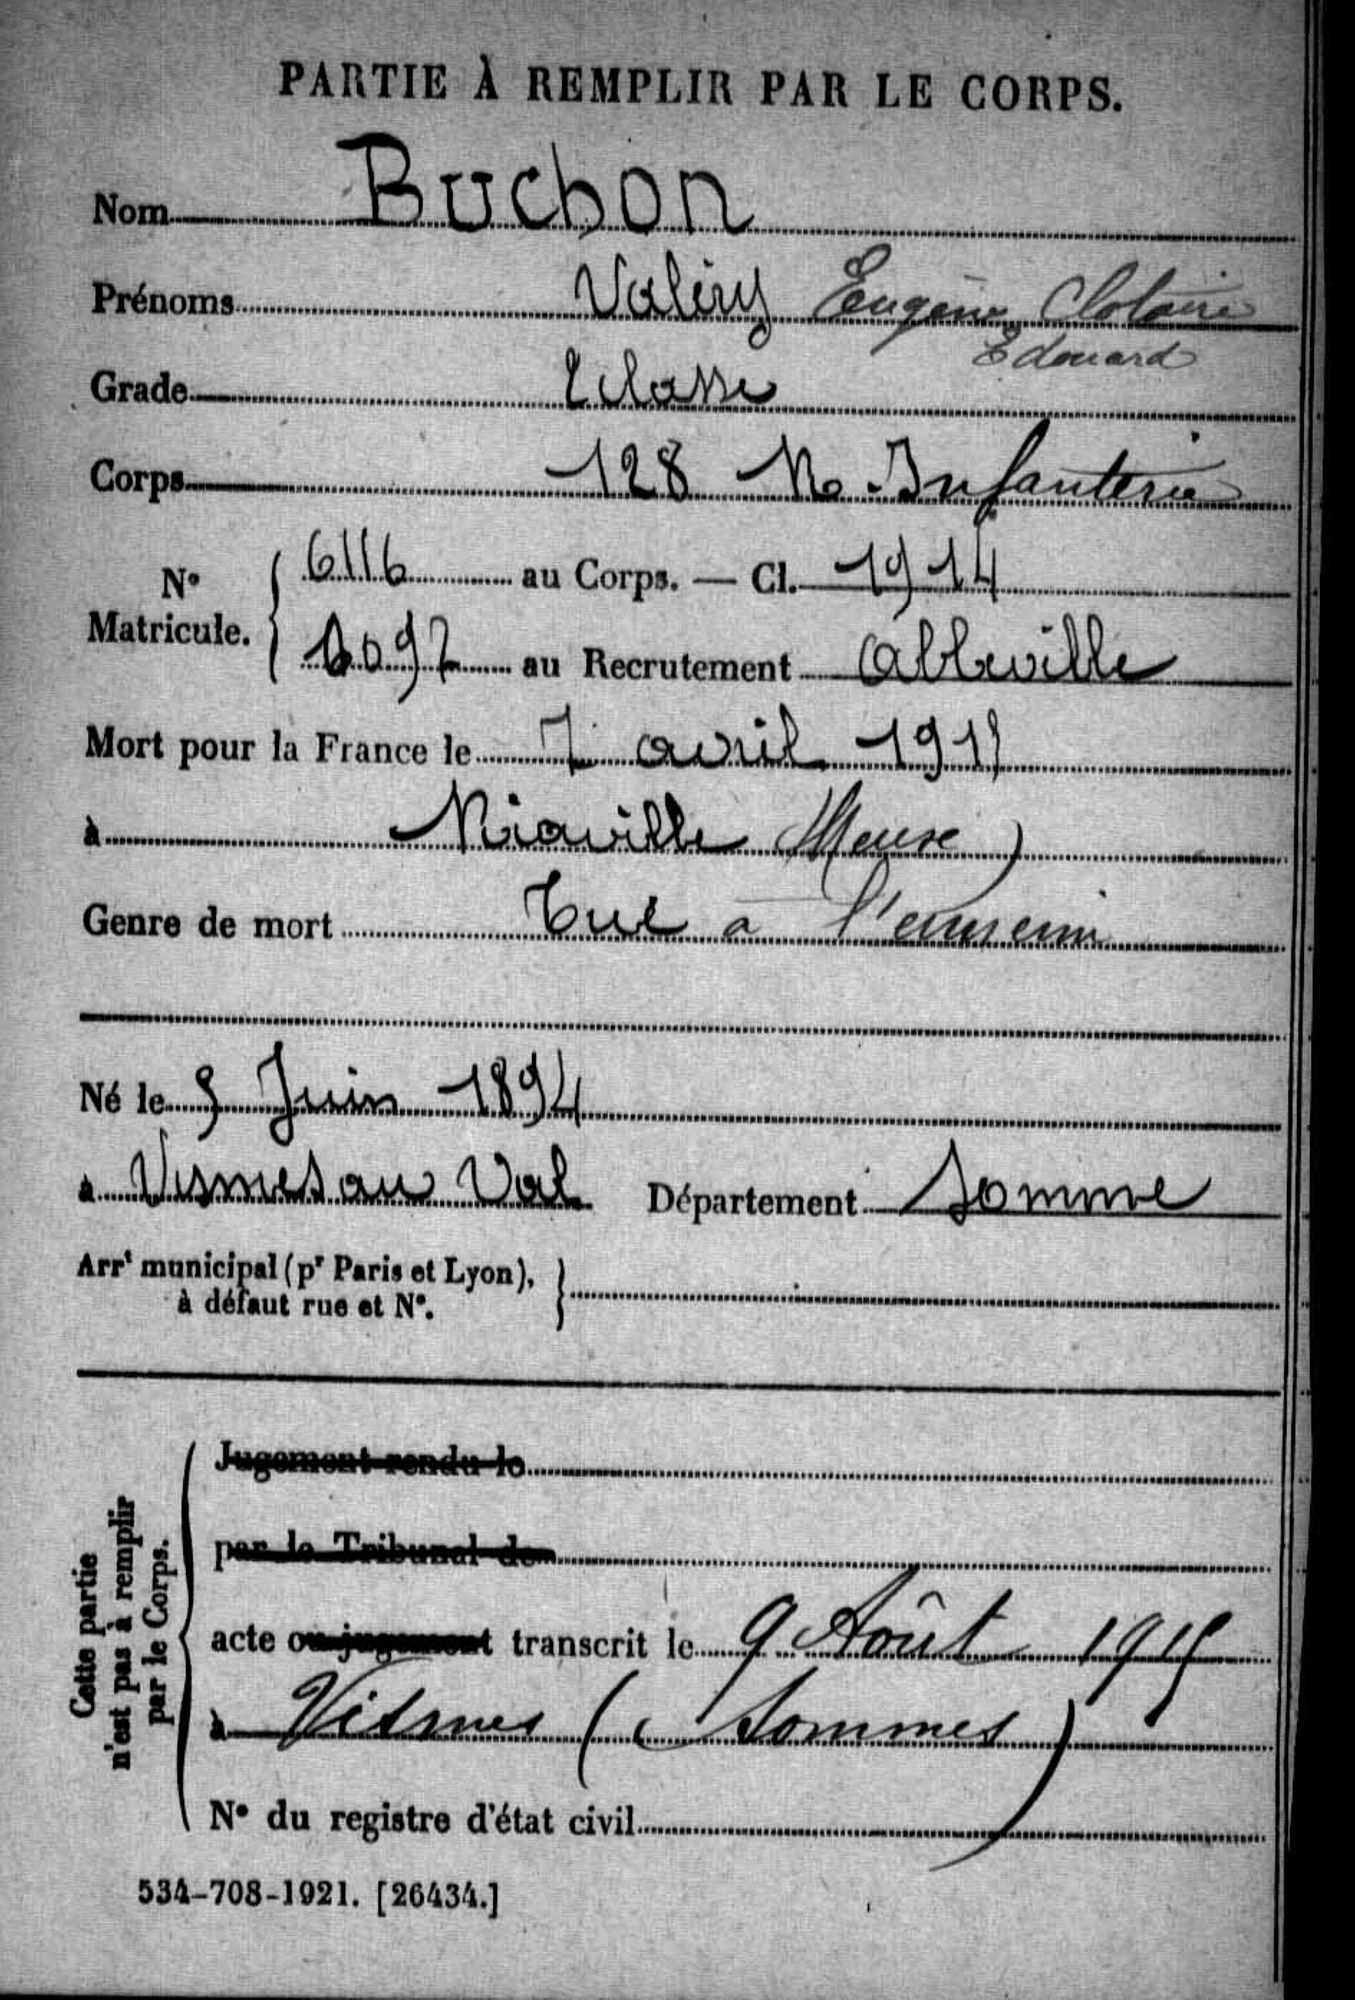 PARTIE À REMPLIR PAR LE CORPS.
Nom Buchon
Prénoms Valéry Eugène Clotaire
Edouard
Grade 2 classe
Corps 128 R Infanterie
N° Matricule. { 6116 au Corps. — Cl. 1914
1092 au Recrutement Abbeville
Mort pour la France le 7 avril 1915
à Riaville (Meuse)
Genre de mort Tué à l'ennemi
Né le 5 Juin 1894
à Vismes au Val Département Somme
Arrt municipal (pr Paris et Lyon),
à défaut rue et N°.
Cette partie
n'est pas à remplir
par le Corps.
Jugement rendu le
par le Tribunal de
acte ou jugement transcrit le 9 Août 1915
à Vismes (Sommes)
N° du registre d'état civil
534-708-1921. [26434.]